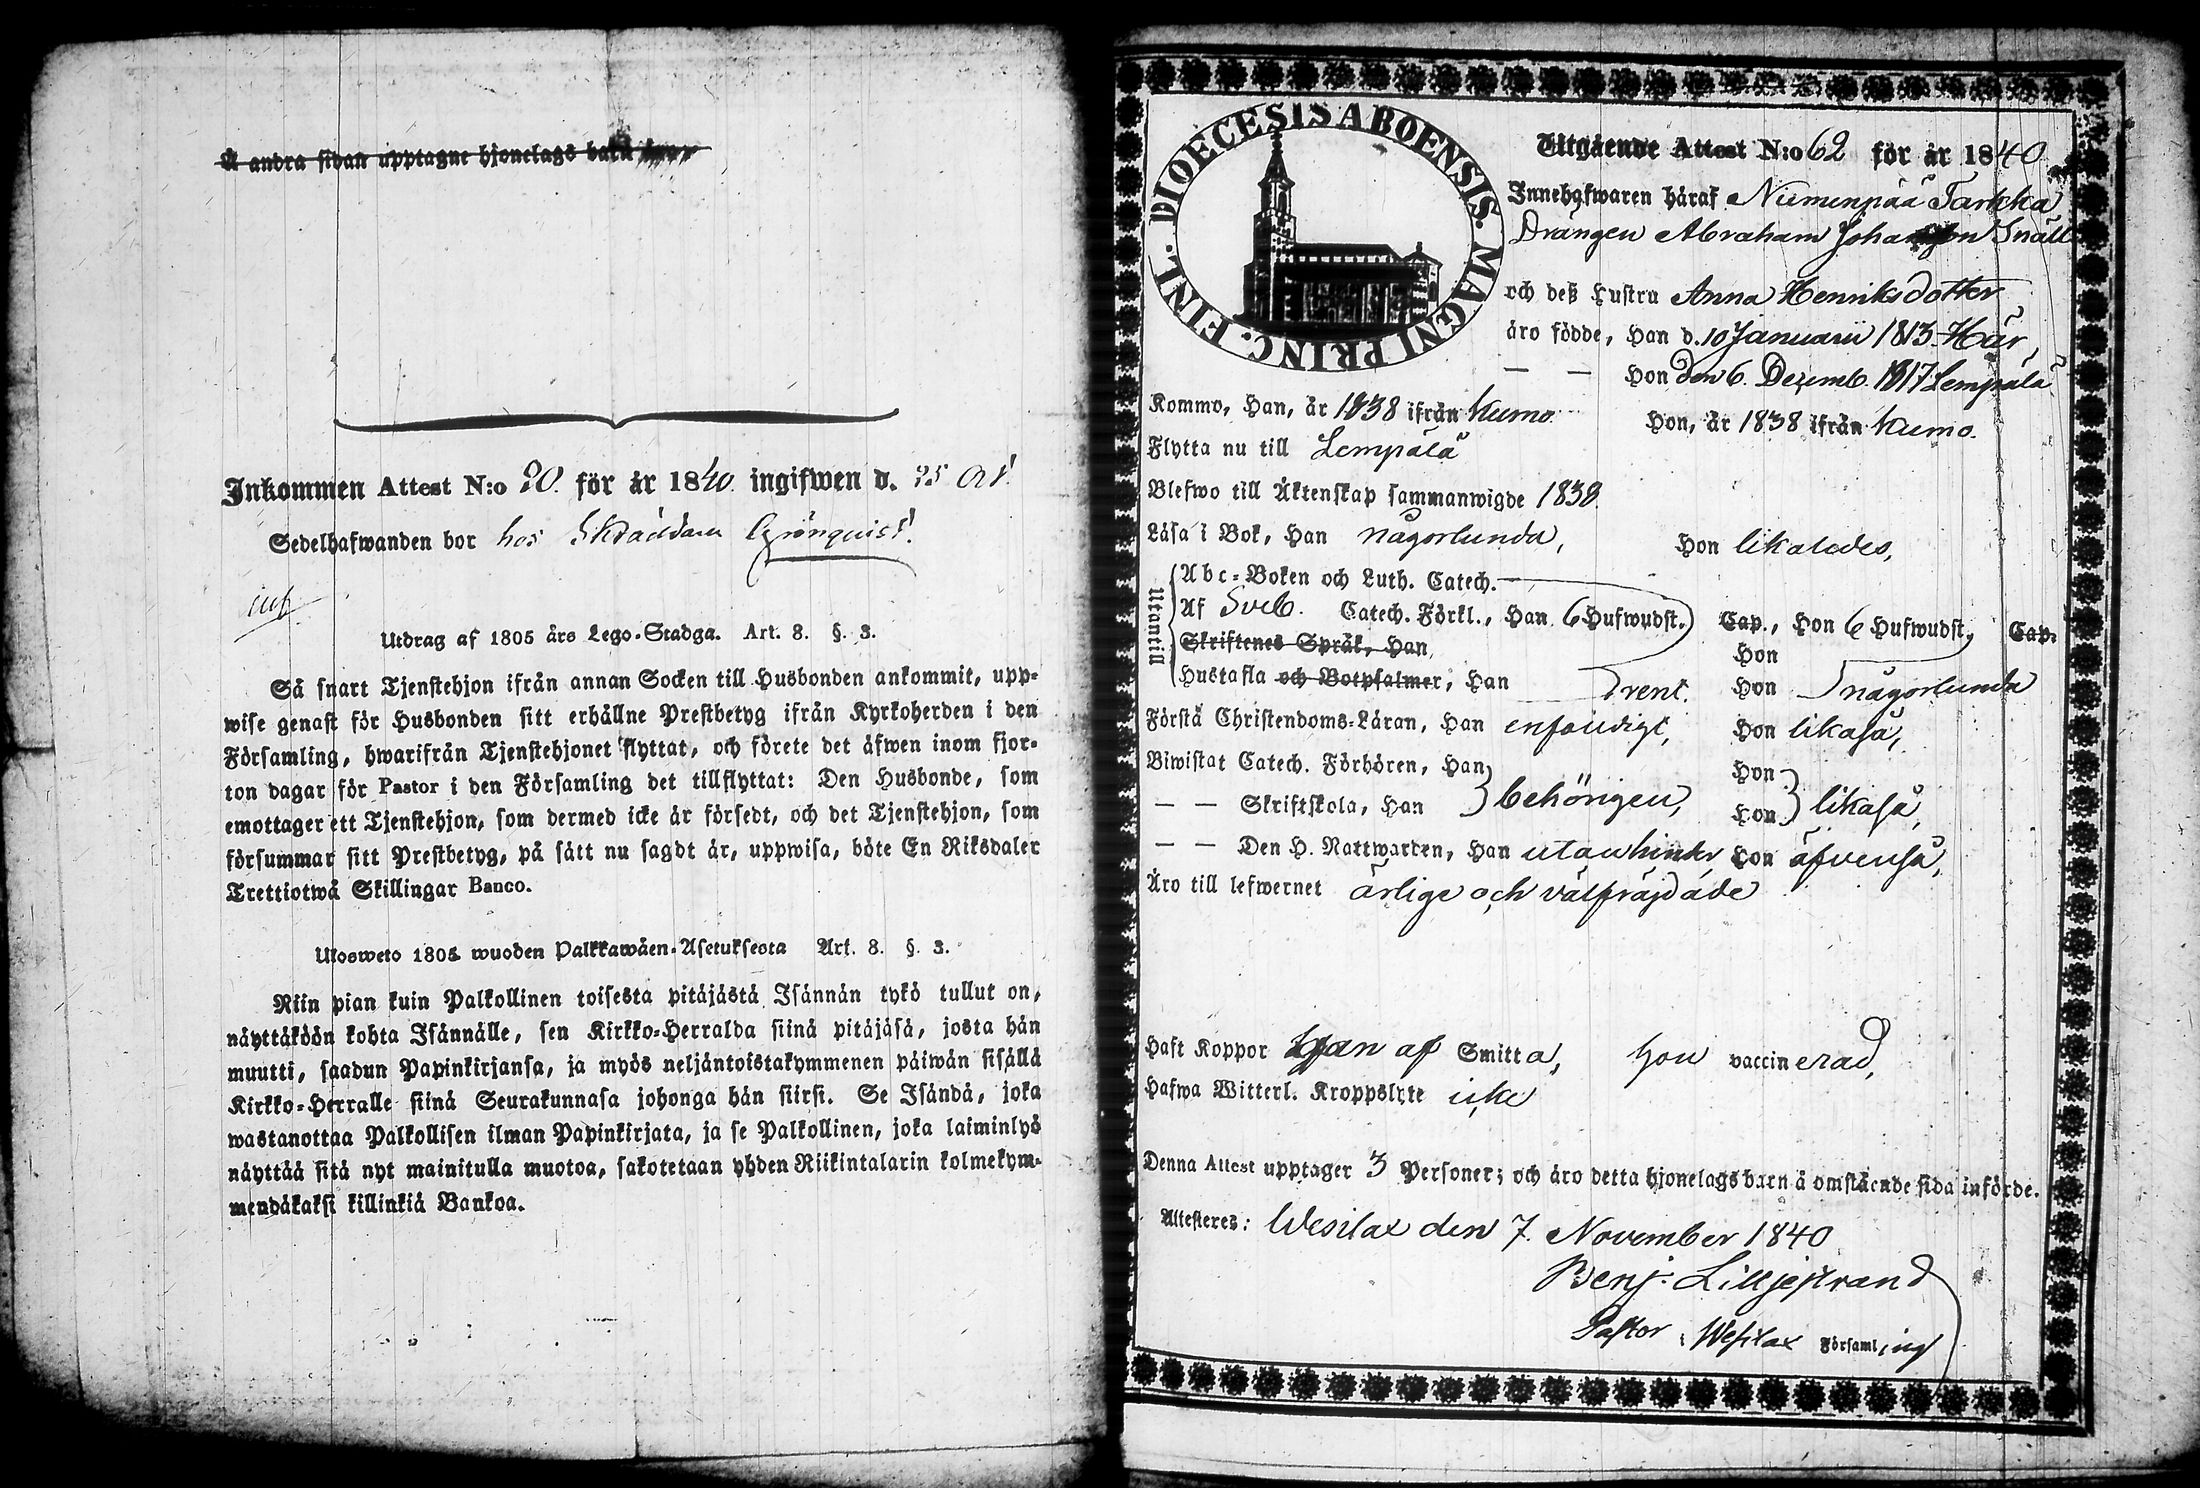 Å andra sidan upptagne hjonelags barn äro,
Inkommen Attest N:o 20. för år 1840. ingifwen d. 25 Oct.
Sedelhafwanden bor hos Skräddare Grönquist.
Utdrag af 1805 års Lego-Stadga. Art. 8. §. 3.
Så snart Tjenstehjon ifrån annan Socken till Husbonden ankommit, upp-
wise genast för Husbonden sitt erhållne Prestbetyg ifrån Kyrkoherden i den
Församling, hwarifrån Tjenstehjonet flyttat, och förete det äfwen inom fjor-
ton dagar för Pastor i den Församling det tillflyttat: Den Husbonde, som
emottager ett Tjenstehjon, som dermed icke är försedt, och det Tjenstehjon, som
försummar sitt Prestbetyg, på sätt nu sagdt är, uppwisa, böte En Riksdaler
Trettiotwå Skillingar Banco.
Ulosweto 1805 wuoden Palkkawäen-Asetuksesta Art. 8. §. 3.
Niin pian kuin Palkollinen toisesta pitäjästä Isännän tykö tullut on,
näyttäköön kohta Isännälle, sen Kirkko-Herralda siinä pitäjäsä, josta hän
muutti, saadun Papinkirjansa, ja myös neljäntoistakymmenen päiwän sisällä
Kirkko-Herralle siinä Seurakunnasa johonga hän siirsi. Se Isändä, joka
wastanottaa Palkollisen ilman Papinkirjata, ja se Palkollinen, joka laiminlyö
näyttää sitä nyt mainitulla muotoa, sakotetaan yhden Riikintalarin kolmekym-
mendäkaksi killinkiä Bankoa.
DIOECESIS ABOENSIS. MAGNI PRINC. FINL.
Utgående Attest N:o 62 för år 1840.
Innehafwaren häraf Niemenpää Tarkka
Drängen Abraham Johansson Snäll
och deß Hustru Anna Henriksdotter
äro födde, Han d. 10 Januarii 1813 Här,
— — Hon den 6. Decemb. 1817 Lempälä
Kommo, Han, år 1838 ifrån Kumo Hon, år 1838 ifrån Kumo.
Flytta nu till Lempälä
Blefwo till Äktenskap sammanwigde 1838.
Läsa i Bok, Han någorlunda, Hon likaledes,
Utantill
Abc-Boken och Luth. Catech.
Af Sveb. Catech. Förkl., Han 6 Hufwudst. Cap., Hon 6 Hufwudst, Cap.
Skriftenes Språk, Han Hon
Hustafla och Botpsalmer, Han rent. Hon någorlunda
Förstå Christendoms-Läran, Han enfaldigt, Hon likaså,
Biwistat Catech. Förhören, Han Hon
— — Skriftskola, Han behörigen, Hon likaså,
— — Den H. Nattwarden, Han utan hinder, Hon äfvenså,
Äro till lefwernet ärlige och välfräjdade
Haft Koppor Han af Smitta, hon vaccinerad,
Hafwa Witterl. Kroppslyte icke
Denna Attest upptager 3 Personer; och äro detta hjonelags barn å omstående sida införde.
Attesteres: Wesilax den 7. November 1840
Benj. Lilljestrand
Pastor i Wesilax Församling